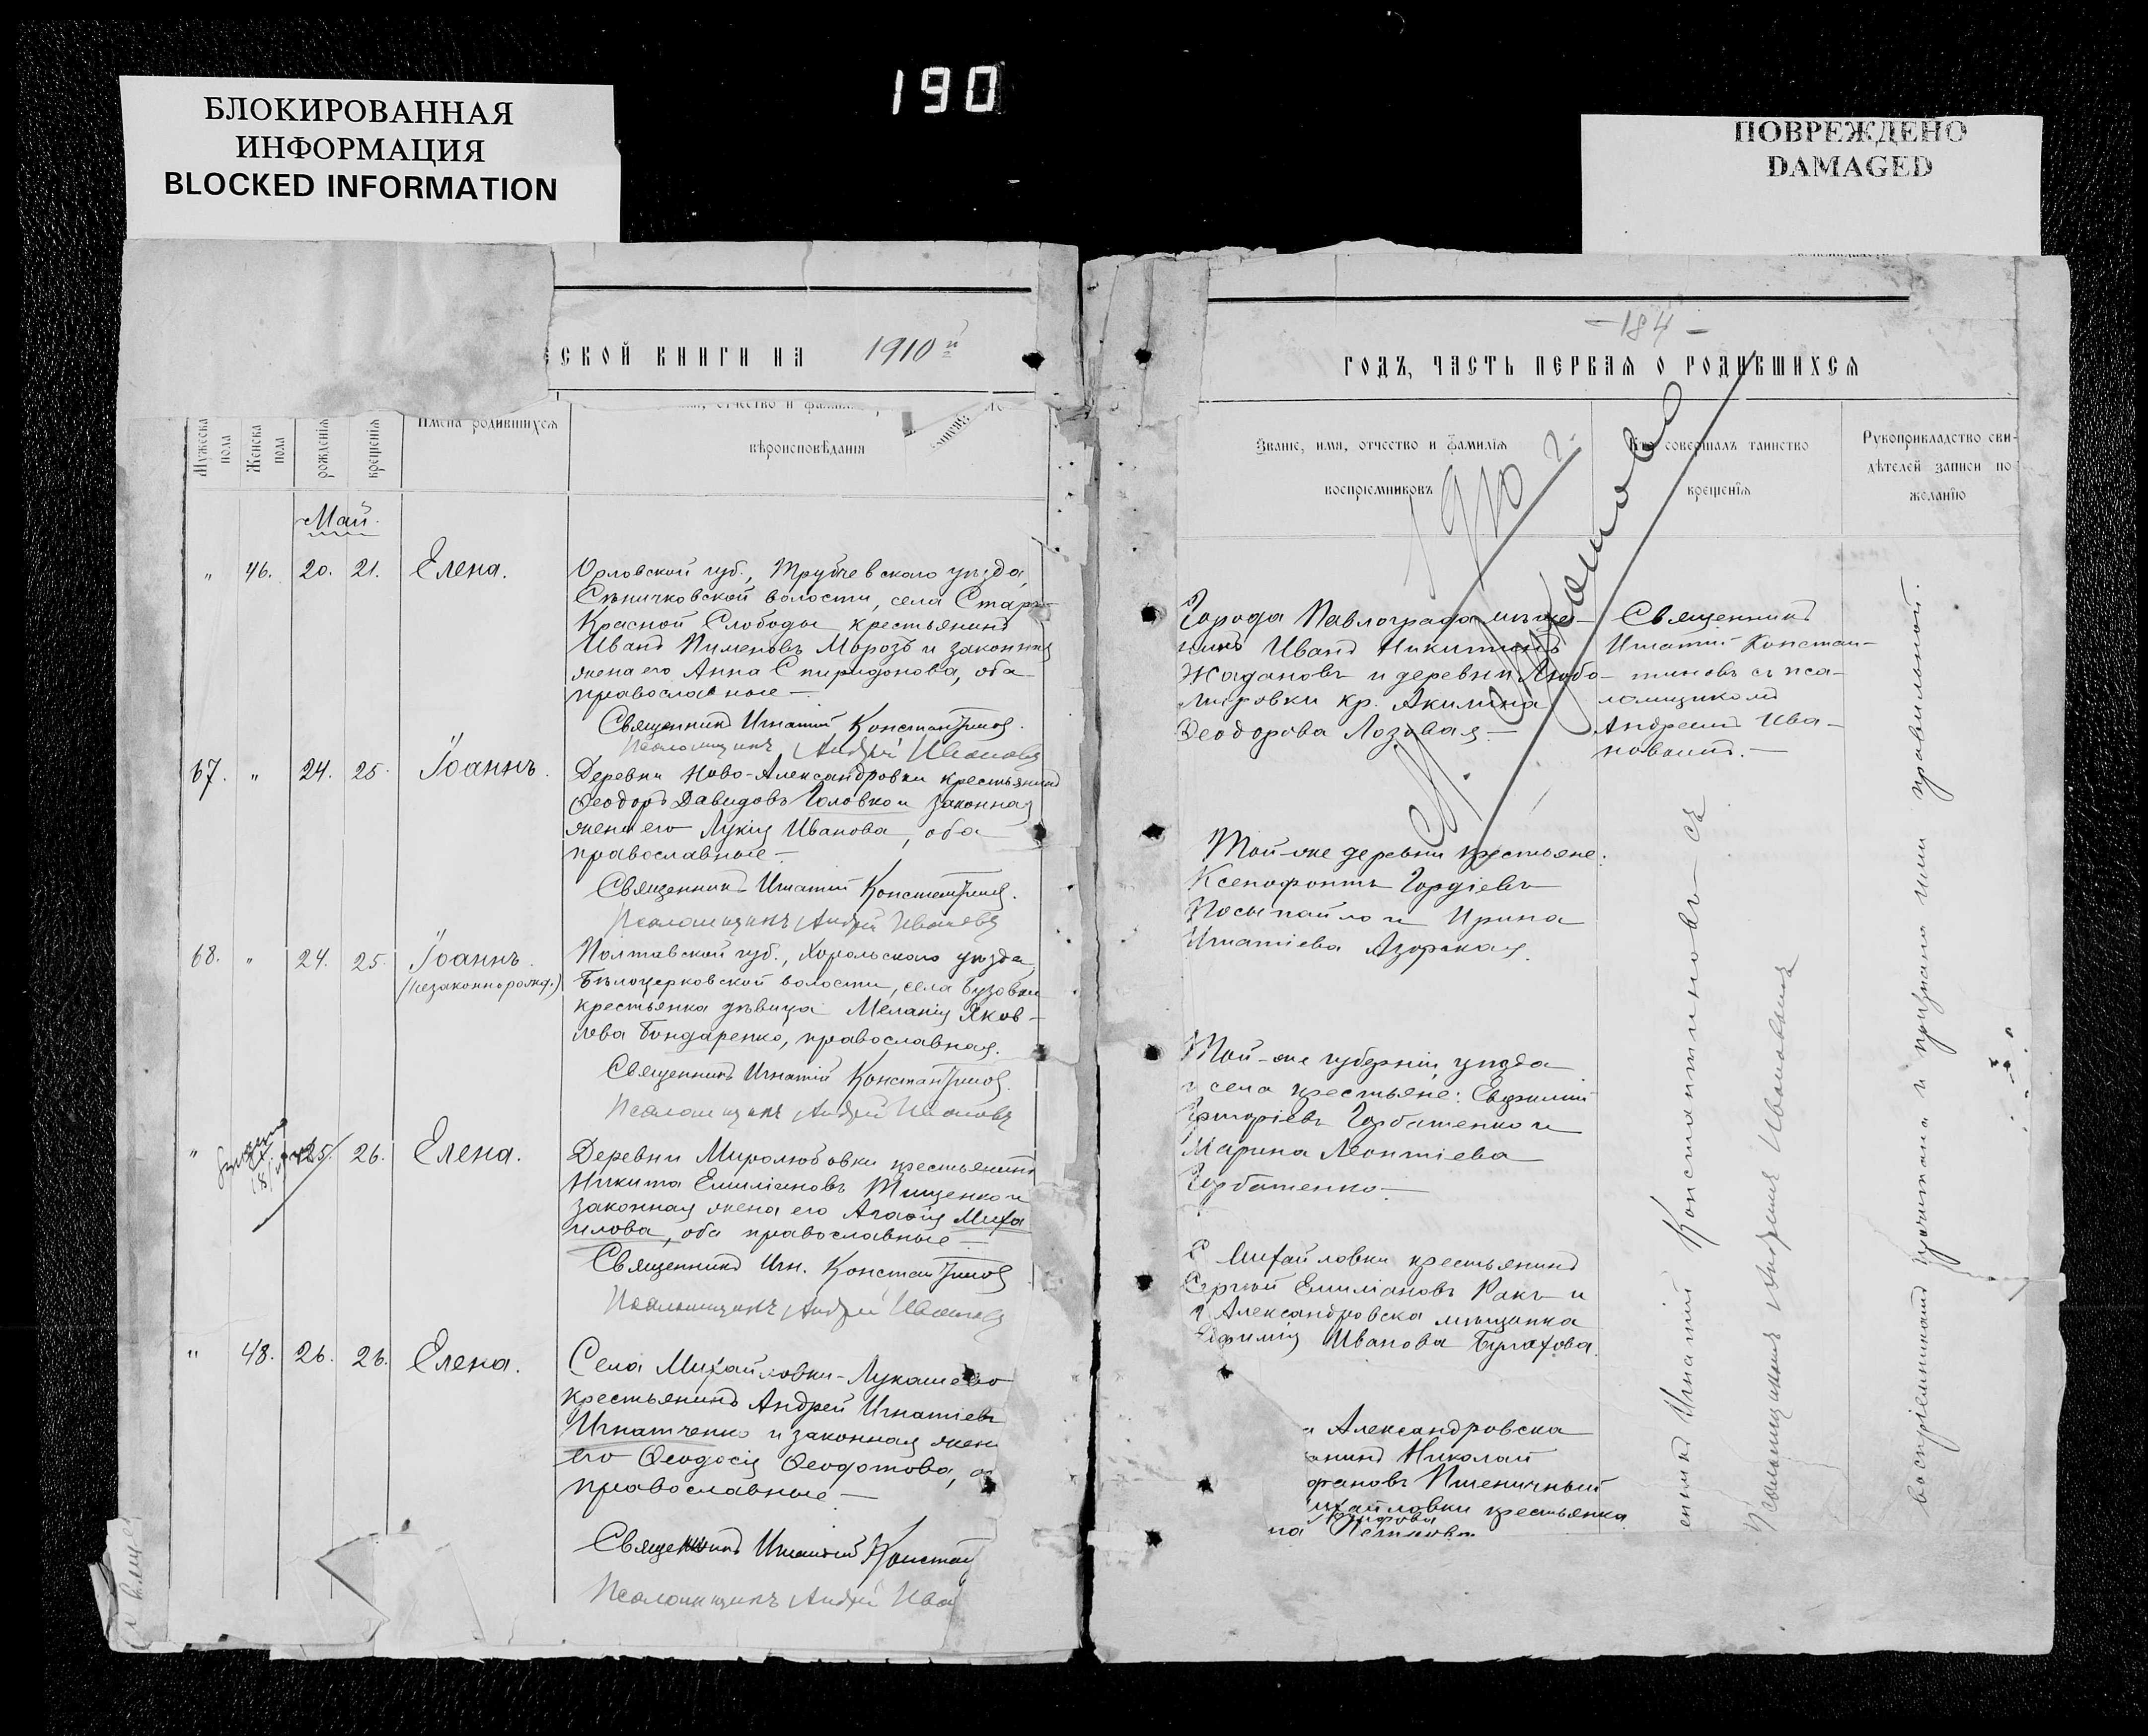 190
БЛОКИРОВАННАЯ
ИНФОРМАЦИЯ
BLOCKED INFORMATION
ПОВРЕЖДЕНО
DAMAGED
ЕСКОЙ КНИГИ НА 1910 й
Мужеска пола
Женска пола
рожденія
крещенія
Имена родившихся
вѣроисповѣданія
Май.
" 46. 20. 21. Елена.
Орловской губ., Трубчевскаго уѣзда,
волости, села Старо-
Красной Слободы крестьянинъ
Иванъ Пименовъ Морозъ и законная
жена его Анна Спиридонова, оба
православные —
Священникъ Игнатій Константиновъ.
Псаломщикъ Андрей Ивановъ
67. " 24. 25. Іоаннъ.
Деревни Ново-Александровки крестьянинъ
Ѳеодоръ Давидовъ Головко и законная
жена его Лукія Иванова, оба
православные —
Священникъ Игнатій Константиновъ.
Псаломщикъ Андрей Ивановъ
68. " 24. 25. Іоаннъ.
(незаконнорожд.)
Полтавской губ., Хорольскаго уѣзда,
Бѣлоцерковской волости, села Бузовки
крестьянка дѣвица Меланія Яков-
лева Бондаренко, православная.
Священникъ Игнатій Константиновъ.
Псаломщикъ Андрей Ивановъ
" 25. 26. Елена.
Деревни Миролюбовки крестьянинъ
Никита Емиліановъ Тищенко и
законная жена его Агаѳія Миха
илова, оба православные —
Священникъ Игн. Константиновъ
Псаломщикъ Андрей Ивановъ
" 48. 26. 26. Елена.
Села Михайловки-Лукашево
крестьянинъ Андрей Игнатіевъ
Игнатченко и законная жена
его Ѳеодосія Ѳеодотова, о
православные —
Священникъ Игнатій Констан
Псаломщикъ Андрей Ива
— 184 —
ГОДЪ, ЧАСТЬ ПЕРВАЯ О РОДИВШИХСЯ
Званіе, имя, отчество и фамилія
воспріемниковъ
Кто совершалъ таинство
крещенія
Рукоприкладство сви-
дѣтелей записи по
желанію
1910 г.
Города Павлограда мѣща-
нинъ Иванъ Никитинъ
Жадановъ и деревни Любо-
мировки кр. Акилина
Ѳеодорова Лозовая —
Священникъ
Игнатій Констан-
тиновъ съ пса-
ломщикомъ
Андреемъ Ива-
новымъ. —
Той-же деревни крестьяне:
Ксенофонтъ Гордіевъ
Посыпайло и Ирина
Игнатіева Азорская.
Той-же губерніи, уѣзда
и села крестьяне: Евфимій
Григоріевъ Горбатенко и
Марина Леонтіева
Горбатенко. —
С Михайловки крестьянинъ
Сергѣй Емиліановъ Ракъ и
г Александровска мѣщанка
Ефимія Иванова Булахова.
Александровска
анинъ Николай
фановъ Пшеничный
ихайловки крестьянка
енникъ Игнатій Константиновъ съ
Псаломщикомъ Андреемъ Ивановымъ
воспріемниками прочитана и признана ими правильной.